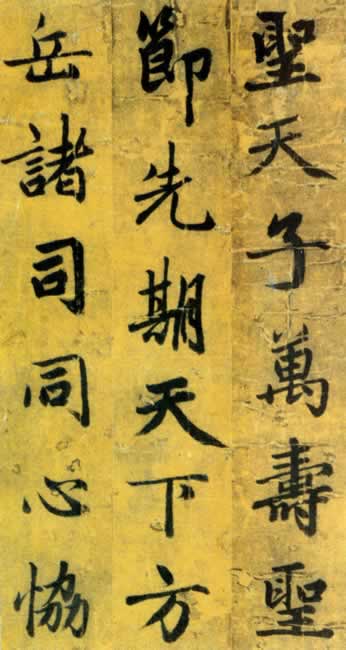 聖天子萬壽聖
節先期天下方
岳諸司同心恊